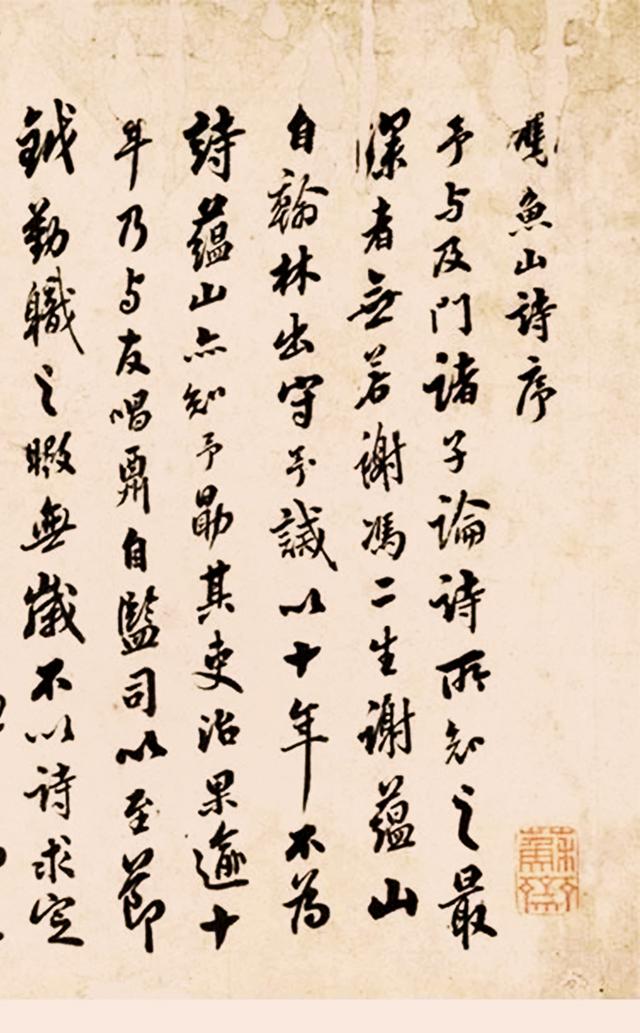 馮魚山詩序
予与及門諸子論詩所知之最
深者無若謝馮二生謝蘊山
自翰林出守予誡以十年不為
詩蘊山亦知予勖其吏治果逾十
年乃与友唱酬自監司以至節
鉞勤職之暇無歲不以詩求定